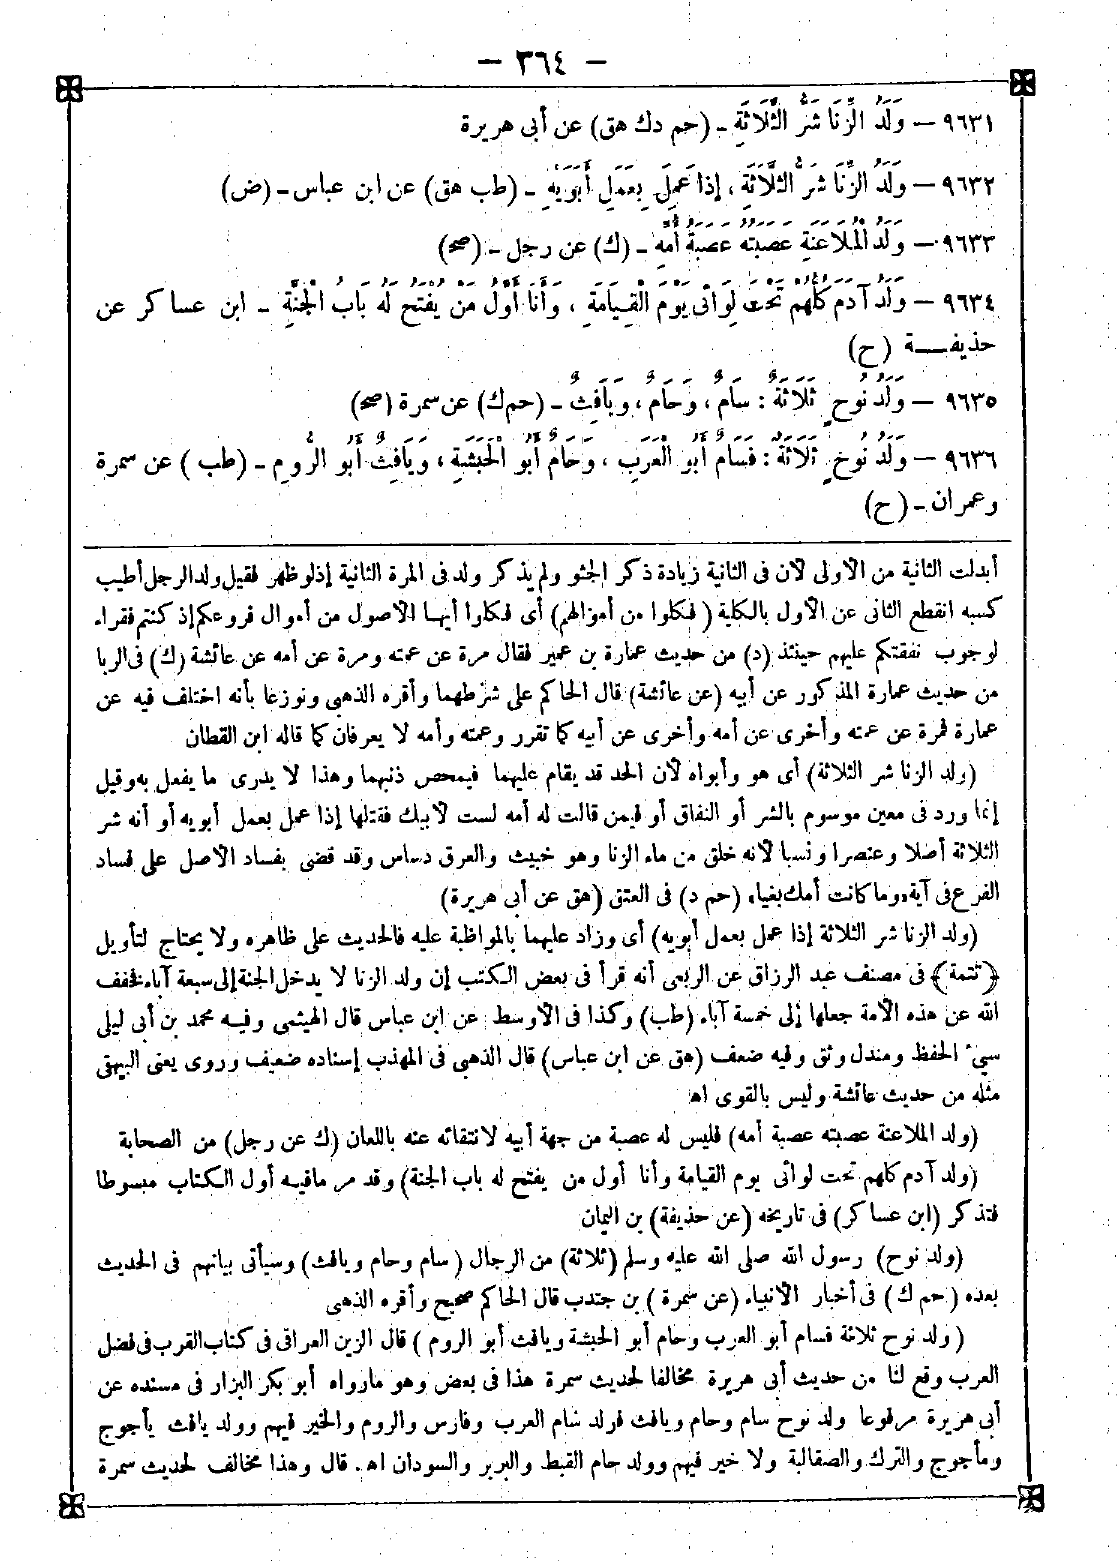 — ٣٦٤ —
٩٦٣١ — وَلَدُ الزِّنَا شَرُّ الثَّلَاثَةِ - (حم دك هق) عن أبى هريرة
٩٦٣٢ — وَلَدُ الزِّنَا شَرُّ الثَّلَاثَةِ ، إذَا عَمِلَ بِعَمَلِ أَبَوَيْهِ - (طب هق) عن ابن عباس - (ض)
٩٦٣٣ — وَلَدُ الْمُلَاعَنَةِ عَصَبَتُهُ عَصَبَةُ أُمِّهِ - (ك) عن رجل - (صح)
٩٦٣٤ — وَلَدُ آدَمَ كُلُّهُمْ تَحْتَ لِوَائِى يَوْمَ الْقِيَامَةِ ، وَأَنَا أَوَّلُ مَنْ يُفْتَحُ لَهُ بَابُ الْجَنَّةِ - ابن عساكر عن
حذيفة (ح)
٩٦٣٥ — وَلَدُ نُوحٍ ثَلَاثَةٌ : سَامٌ ، وَحَامٌ ، وَيَافِثٌ - (حم ك) عن سمرة (صح)
٩٦٣٦ — وَلَدُ نُوحٍ ثَلَاثَةٌ : فَسَامٌ أَبُو الْعَرَبِ ، وَحَامٌ أَبُو الْحَبَشَةِ ، وَيَافِثٌ أَبُو الرُّومِ - (طب ) عن سمرة
وعمران - (ح)
أبدلت الثانية من الأولى لأن فى الثانية زيادة ذكر الجثو ولم يذكر ولد فى المرة الثانية إذ لو ظهر لقيل ولد الرجل أطيب
كسبه انقطع الثانى عن الأول بالكلية ( فكلوا من أموالهم) أى فكلوا أيها الأصول من أموال فروعكم إذ كنتم فقراء
لوجوب نفقتكم عليهم حينئذ (د) من حديث عمارة بن عمير فقال مرة عن عمته ومرة عن أمه عن عائشة (ك) فى الربا
من حديث عمارة المذكور عن أبيه (عن عائشة) قال الحاكم على شرطهما وأقره الذهبى ونوزعا بأنه اختلف فيه عن
عمارة فمرة عن عمته وأخرى عن أمه وأخرى عن أبيه كما تقرر وعمته وأمه لا يعرفان كما قاله ابن القطان
(ولد الزنا شر الثلاثة) أى هو وأبواه لأن الحد قد يقام عليهما فيمحص ذنبهما وهذا لا يدرى ما يفعل به وقيل
إنما ورد فى معين موسوم بالشر أو النفاق أو فيمن قالت له أمه لست لأبيك فقتلها إذا عمل بعمل أبويه أو أنه شر
الثلاثة أصلا وعنصرا ونسبا لأنه خلق من ماء الزنا وهو خبيث والعرق دساس وقد قضى بفساد الأصل على فساد
الفرع فى آية ، وما كانت أمك بغيا ، (حم د) فى العتق (هق عن أبى هريرة)
(ولد الزنا شر الثلاثة إذا عمل بعمل أبويه) أى وزاد عليهما بالمواظبة عليه فالحديث على ظاهره ولا يحتاج لتأويل
﴿تتمة﴾ فى مصنف عبد الرزاق عن الربعى أنه قرأ فى بعض الكتب إن ولد الزنا لا يدخل الجنة إلى سبعة آباء فخفف
الله عن هذه الأمة جعلها إلى خمسة آباء (طب) وكذا فى الأوسط عن ابن عباس قال الهيثمى وفيه محمد بن أبى ليلى
سىء الحفظ ومندل وثق وفيه ضعف (هق عن ابن عباس) قال الذهبى فى المهذب إسناده ضعيف وروى يعنى البيهقى
مثله من حديث عائشة وليس بالقوى اه
(ولد الملاعنة عصبته عصبة أمه) فليس له عصبة من جهة أبيه لانتفائه عنه باللعان (ك عن رجل) من الصحابة
(ولد آدم كلهم تحت لوائى يوم القيامة وأنا أول من يفتح له باب الجنة) وقد مر ما فيه أول الكتاب مبسوطا
فتذكر (ابن عساكر) فى تاريخه (عن حذيفة) بن اليمان
(ولد نوح) رسول الله صلى الله عليه وسلم (ثلاثة) من الرجال (سام وحام ويافث) وسيأتى بيانهم فى الحديث
بعده (حم ك) فى أخبار الأنبياء (عن سمرة ) بن جندب قال الحاكم صحيح وأقره الذهبى
( ولد نوح ثلاثة فسام أبو العرب وحام أبو الحبشة ويافث أبو الروم ) قال الزين العراقى فى كتاب القرب فى فضل
العرب وقع لنا من حديث أبى هريرة مخالفا لحديث سمرة هذا فى بعض وهو ما رواه أبو بكر البزار فى مسنده عن
أبى هريرة مرفوعا ولد نوح سام وحام ويافث فولد سام العرب وفارس والروم والخير فيهم وولد يافث يأجوج
ومأجوج والترك والصقالبة ولا خير فيهم وولد حام القبط والبربر والسودان اه . قال وهذا مخالف لحديث سمرة